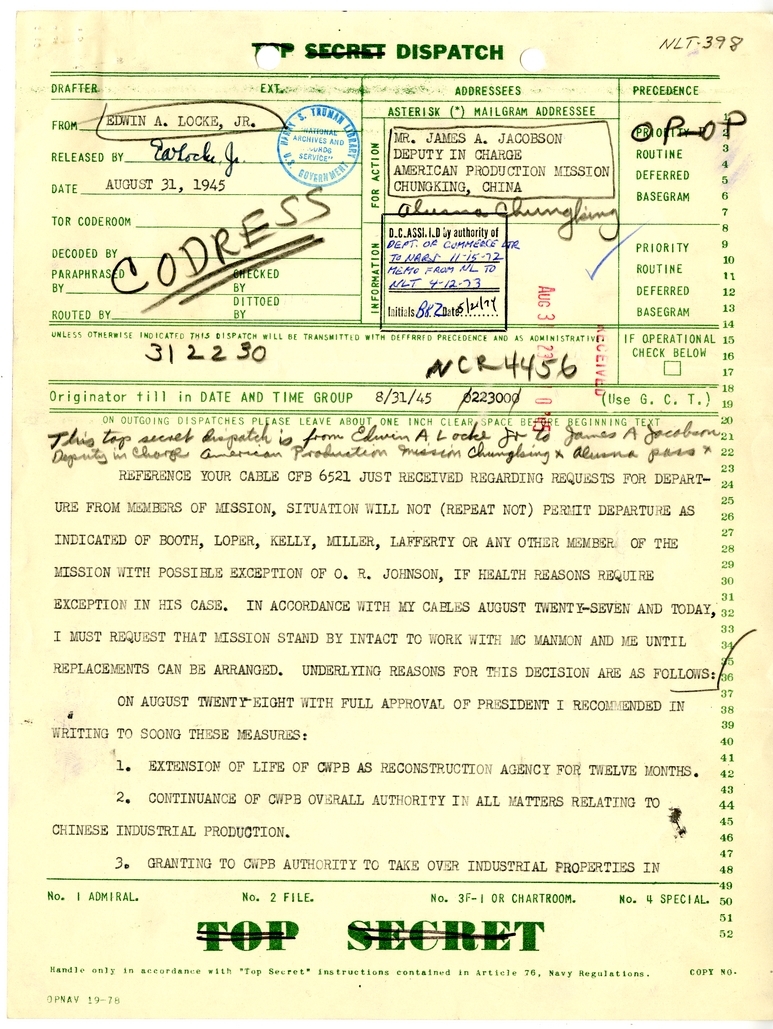 NLT-398
TOP SECRET DISPATCH
DRAFTER EXT. ADDRESSEES PRECEDENCE
FROM EDWIN A. LOCKE, JR.
RELEASED BY EALocke, Jr.
DATE AUGUST 31, 1945
TOR CODEROOM
DECODED BY
PARAPHRASED BY CHECKED BY
DITTOED BY
ROUTED BY
CODRESS
HARRY S. TRUMAN LIBRARY
"NATIONAL ARCHIVES AND RECORDS SERVICE"
U.S. GOVERNMENT
ASTERISK (*) MAILGRAM ADDRESSEE
FOR ACTION
MR. JAMES A. JACOBSON
DEPUTY IN CHARGE
AMERICAN PRODUCTION MISSION
CHUNGKING, CHINA
Alusna Chungking
INFORMATION
D.C.ASSI.I.D by authority of
DEPT. OF COMMERCE LTR
TO NARS 11-15-72
MEMO FROM NL TO
NLT 4-12-73
Initials Date 5/2/74
OP OP
PRIORITY
ROUTINE
DEFERRED
BASEGRAM
PRIORITY
ROUTINE
DEFERRED
BASEGRAM
RECEIVED
UNLESS OTHERWISE INDICATED THIS DISPATCH WILL BE TRANSMITTED WITH DEFERRED PRECEDENCE AND AS ADMINISTRATIVE
312230
NCR4456
IF OPERATIONAL
CHECK BELOW
Originator fill in DATE AND TIME GROUP 8/31/45 022300 (Use G. C. T.)
ON OUTGOING DISPATCHES PLEASE LEAVE ABOUT ONE INCH CLEAR SPACE BEFORE BEGINNING TEXT
This top secret dispatch is from Edwin A Locke Jr to James A Jacobson
Deputy in Charge American Production Mission Chungking x Alusna pass x
REFERENCE YOUR CABLE CFB 6521 JUST RECEIVED REGARDING REQUESTS FOR DEPART-
URE FROM MEMBERS OF MISSION, SITUATION WILL NOT (REPEAT NOT) PERMIT DEPARTURE AS
INDICATED OF BOOTH, LOPER, KELLY, MILLER, LAFFERTY OR ANY OTHER MEMBER OF THE
MISSION WITH POSSIBLE EXCEPTION OF O. R. JOHNSON, IF HEALTH REASONS REQUIRE
EXCEPTION IN HIS CASE. IN ACCORDANCE WITH MY CABLES AUGUST TWENTY-SEVEN AND TODAY,
I MUST REQUEST THAT MISSION STAND BY INTACT TO WORK WITH MC MANMON AND ME UNTIL
REPLACEMENTS CAN BE ARRANGED. UNDERLYING REASONS FOR THIS DECISION ARE AS FOLLOWS:
ON AUGUST TWENTY-EIGHT WITH FULL APPROVAL OF PRESIDENT I RECOMMENDED IN
WRITING TO SOONG THESE MEASURES:
1. EXTENSION OF LIFE OF CWPB AS RECONSTRUCTION AGENCY FOR TWELVE MONTHS.
2. CONTINUANCE OF CWPB OVERALL AUTHORITY IN ALL MATTERS RELATING TO
CHINESE INDUSTRIAL PRODUCTION.
3. GRANTING TO CWPB AUTHORITY TO TAKE OVER INDUSTRIAL PROPERTIES IN
1
2
3
4
5
6
7
8
9
10
11
12
13
14
15
16
17
18
19
20
21
22
23
24
25
26
27
28
29
30
31
32
33
34
35
36
37
38
39
40
41
42
43
44
45
46
47
48
49
50
51
52
No. 1 ADMIRAL. No. 2 FILE. No. 3F-1 OR CHARTROOM. No. 4 SPECIAL.
TOP SECRET
Handle only in accordance with "Top Secret" instructions contained in Article 76, Navy Regulations. COPY NO.
OPNAV 19-78